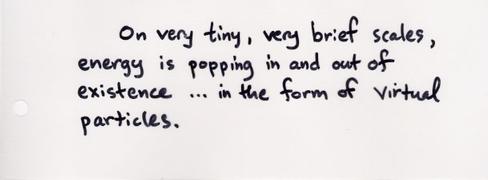 On very tiny, very brief scales,
energy is popping in and out of
existence ... in the form of virtual
particles.